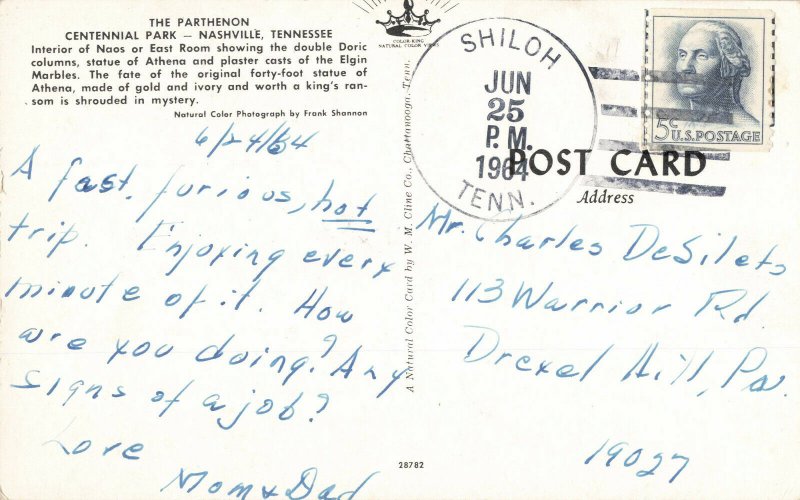 THE PARTHENON
CENTENNIAL PARK — NASHVILLE, TENNESSEE
Interior of Naos or East Room showing the double Doric
columns, statue of Athena and plaster casts of the Elgin
Marbles. The fate of the original forty-foot statue of
Athena, made of gold and ivory and worth a king's ran-
som is shrouded in mystery.
Natural Color Photograph by Frank Shannon
6/24/64
A fast, furious, hot
trip. Enjoying every
minute of it. How
are you doing? Any
signs of a job?
Love
Mom & Dad
COLOR-KING
NATURAL COLOR VIEWS
A Natural Color Card by W. M. Cline Co., Chattanooga, Tenn.
28782
SHILOH
JUN
25
P. M.
1964
TENN.
5c U.S. POSTAGE
POST CARD
Address
Mr. Charles DeSilets
113 Warrior Rd.
Drexel Hill, Pa.
19027